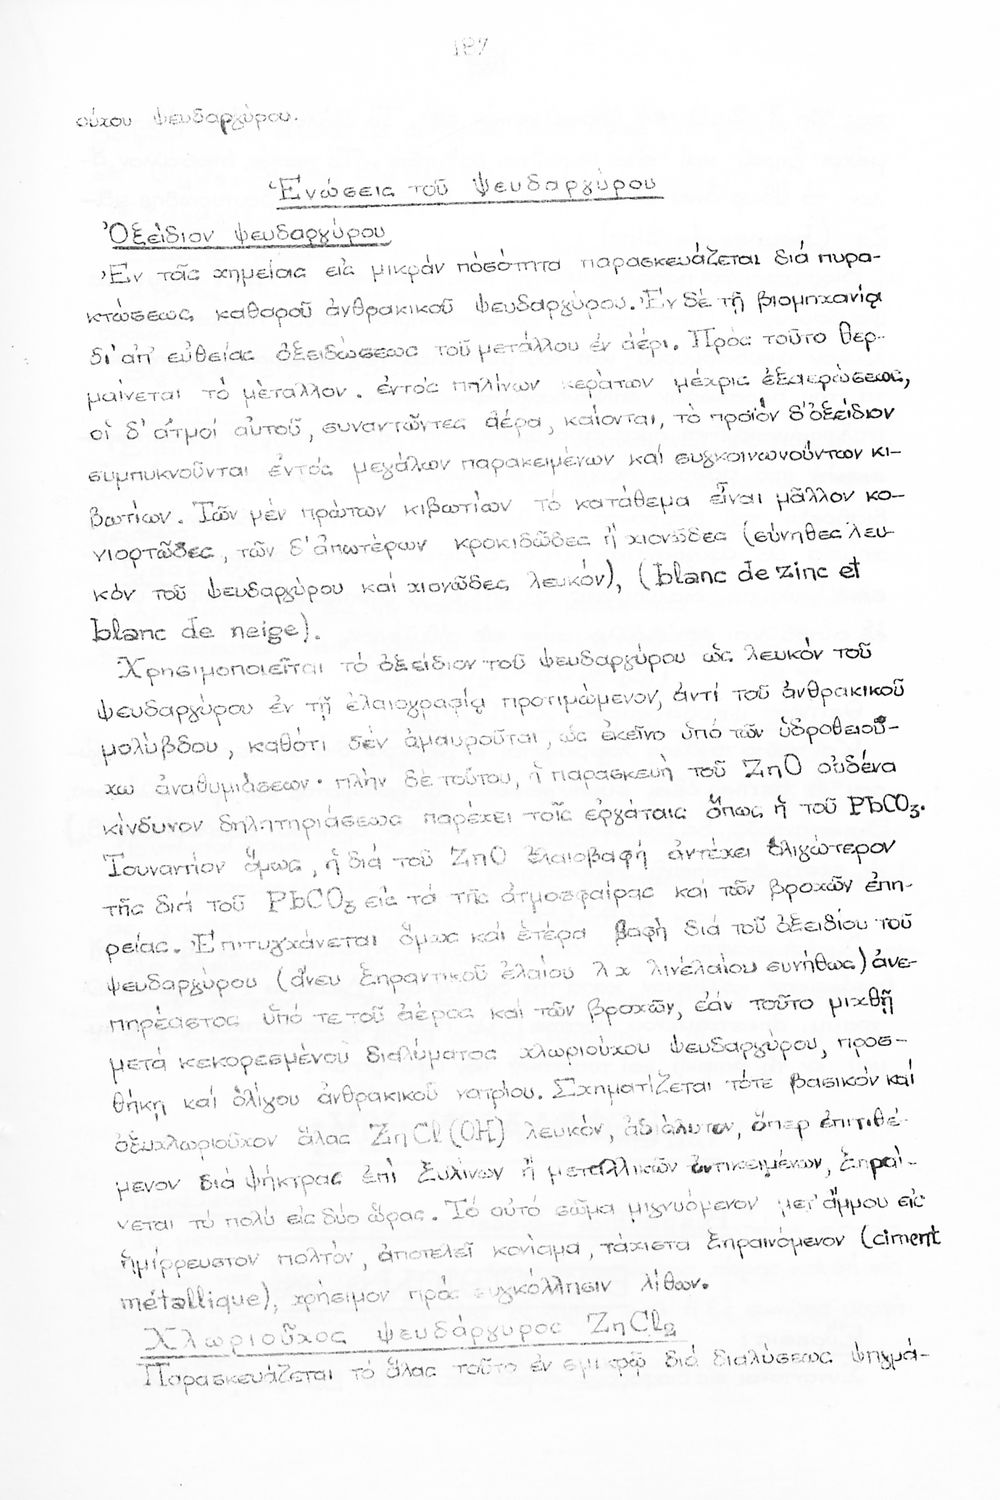 187
ούχου ψευδαργύρου.
Ἑνώσεις τοῦ ψευδαργύρου
Ὀξείδιον ψευδαργύρου
Ἐν ταῖς χημείαις εἰς μικράν πόσότητα παρασκευάζεται διά πυρα-
κτώσεως καθαροῦ ἀνθρακικοῦ ψευδαργύρου. Ἐν δέ τῇ βιομηχανίᾳ
δι' ἀπ' εὐθείας ὀξειδώσεως τοῦ μετάλλου ἐν ἀέρι. Πρός τοῦτο θερ-
μαίνεται τό μέταλλον. ἐντός πηλίνων κεράτων μέχρις ἐξαερώσεως,
οἱ δ' ἀτμοί αὐτοῦ, συναντῶντες ἀέρα, καίονται, τό προϊόν δ' ὀξείδιον
συμπυκνοῦνται ἐντός μεγάλων παρακειμένων καί συγκοινωνούντων κι-
βωτίων. Τῶν μέν πρώτων κιβωτίων τό κατάθεμα εἶναι μᾶλλον κο-
νιορτῶδες, τῶν δ' ἀπωτέρων κροκιδῶδες ἤ χιονῶδες (σύνηθες λευ-
κόν τοῦ ψευδαργύρου καί χιονῶδες λευκόν), (blanc de zinc et
blanc de neige).
Χρησιμοποιεῖται τό ὀξείδιον τοῦ ψευδαργύρου ὡς λευκόν τοῦ
ψευδαργύρου ἐν τῇ ἐλαιογραφίᾳ προτιμώμενον, ἀντί τοῦ ἀνθρακικοῦ
μολύβδου, καθότι δέν ἀμαυροῦται, ὡς ἐκεῖνο ὑπό τῶν ὑδροθειού-
χω ἀναθυμιάσεων· πλήν δέ τούτου, ἡ παρασκευή τοῦ ZnO οὐδένα
κίνδυνον δηλητηριάσεως παρέχει τοῖς ἐργάταις ὅπως ἡ τοῦ PbCO₃.
Τουναντίον ὅμως, ἡ διά τοῦ ZnO ἐλαιοβαφή ἀντέχει ὀλιγώτερον
τῆς διά τοῦ PbCO₃ εἰς τά τῆς ἀτμοσφαίρας καί τῶν βροχῶν ἐπη-
ρείας. Ἐπιτυγχάνεται ὅμως καί ἑτέρα βαφή διά τοῦ ὀξειδίου τοῦ
ψευδαργύρου (ἄνευ ξηραντικοῦ ἐλαίου λ χ λινελαίου συνήθως) ἀνε-
πηρέαστος ὑπό τε τοῦ ἀέρος καί τῶν βροχῶν, ἐάν τοῦτο μιχθῇ
μετά κεκορεσμένου διαλύματος χλωριούχου ψευδαργύρου, προσ-
θήκῃ καί ὀλίγου ἀνθρακικοῦ νατρίου. Σχηματίζεται τότε βασικόν καί
ὀξυχλωριοῦχον ἅλας ZnCl(OH) λευκόν, ἀδιάλυτον, ὅπερ ἐπιτιθέ-
μενον διά ψήκτρας ἐπί ξυλίνων ἤ μεταλλικῶν ἀντικειμένων, ξηραί-
νεται τό πολύ εἰς δύο ὥρας. Τό αὐτό σῶμα μιγνυόμενον μετ' ἄμμου εἰς
ἡμίρρευστον πολτόν, ἀποτελεῖ κονίαμα, τάχιστα ξηραινόμενον (ciment
métallique), χρήσιμον πρός συγκόλλησιν λίθων.
Χλωριοῦχος ψευδάργυρος ZnCl₂
Παρασκευάζεται τό ἅλας τοῦτο ἐν σμικρῷ διά διαλύσεως ψηγμά-